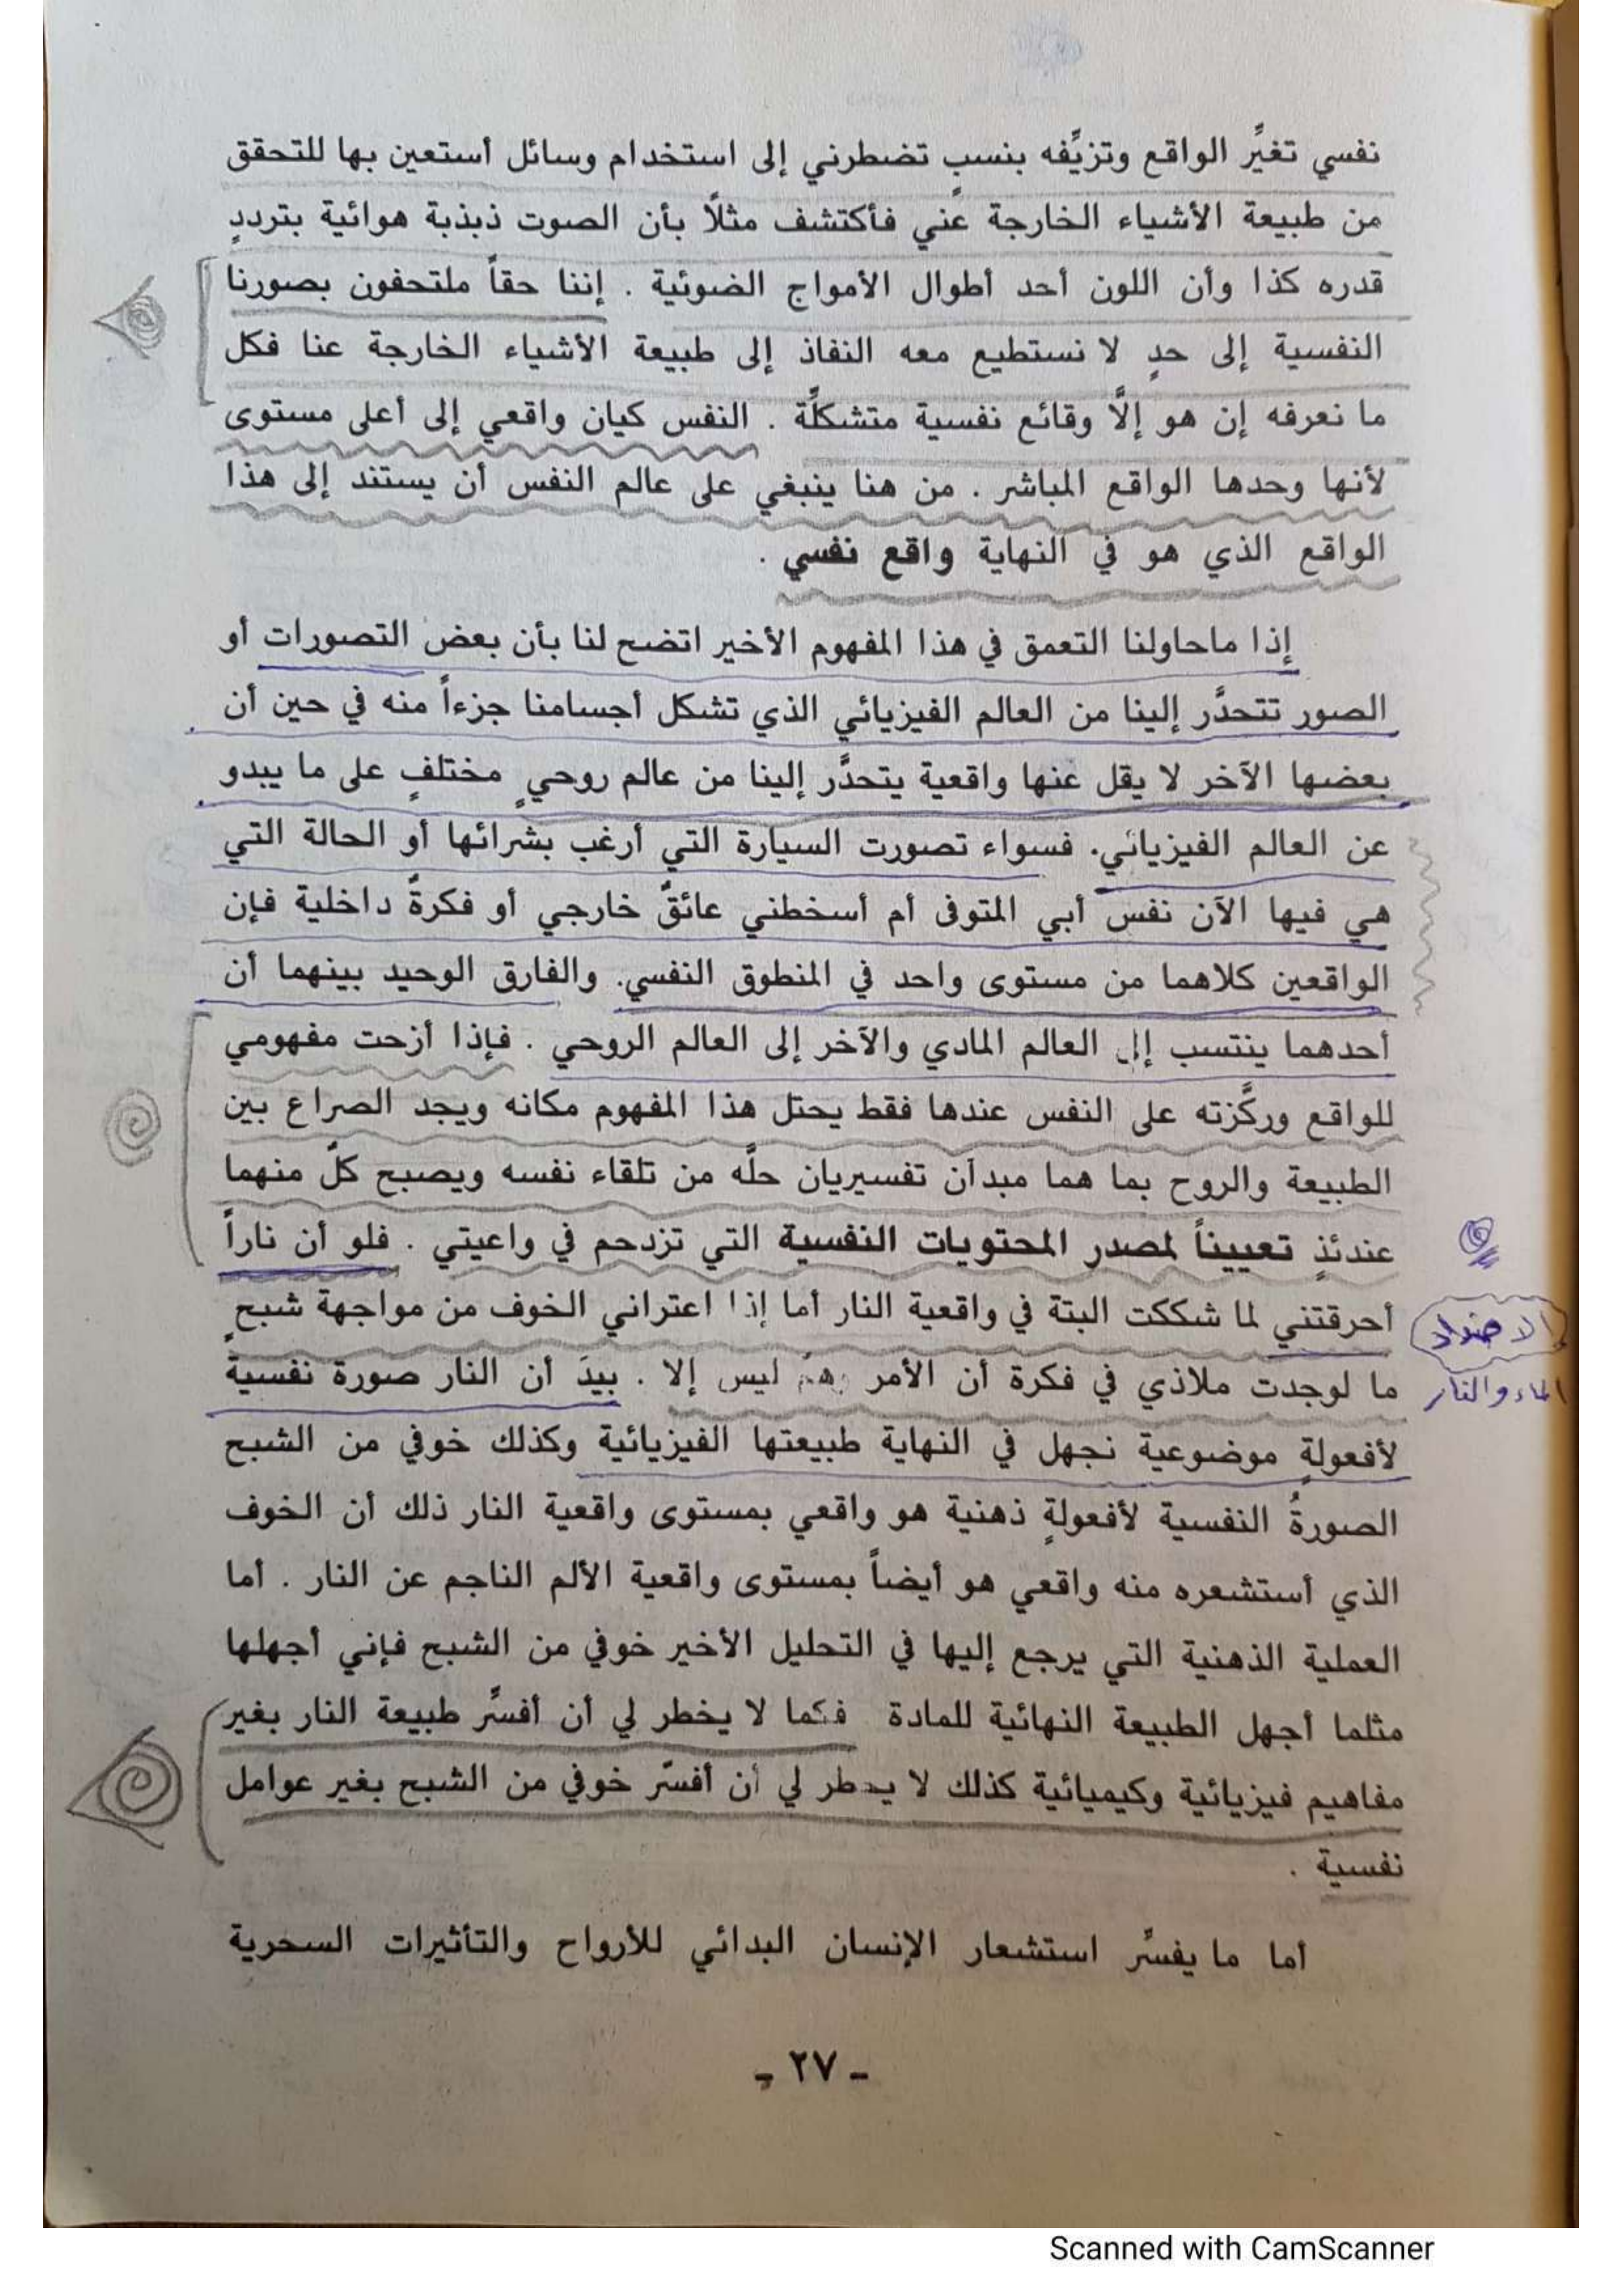 نفسي تغيَّر الواقع وتزيِّفه بنسبٍ تضطرني إلى استخدام وسائل أستعين بها للتحقق
من طبيعة الأشياء الخارجة عني فأكتشف مثلاً بأن الصوت ذبذبة هوائية بترددٍ
قدره كذا وأن اللون أحد أطوال الأمواج الضوئية . إننا حقاً ملتحفون بصورنا
النفسية إلى حدٍ لا نستطيع معه النفاذ إلى طبيعة الأشياء الخارجة عنا فكل
ما نعرفه إن هو إلاَّ وقائع نفسية متشكلَّة . النفس كيان واقعي إلى أعلى مستوى
لأنها وحدها الواقع المباشر . من هنا ينبغي على عالم النفس أن يستند إلى هذا
الواقع الذي هو في النهاية واقع نفسي .
إذا ماحاولنا التعمق في هذا المفهوم الأخير اتضح لنا بأن بعض التصورات أو
الصور تتحدَّر إلينا من العالم الفيزيائي الذي تشكل أجسامنا جزءاً منه في حين أن
بعضها الآخر لا يقل عنها واقعية يتحدَّر إلينا من عالم روحيٍ مختلفٍ على ما يبدو
عن العالم الفيزيائي. فسواء تصورت السيارة التي أرغب بشرائها أو الحالة التي
هي فيها الآن نفس أبي المتوفى أم أسخطني عائقٌ خارجي أو فكرةٌ داخلية فإن
الواقعين كلاهما من مستوى واحد في المنطوق النفسي. والفارق الوحيد بينهما أن
أحدهما ينتسب إلى العالم المادي والآخر إلى العالم الروحي . فإذا أزحت مفهومي
للواقع وركَّزته على النفس عندها فقط يحتل هذا المفهوم مكانه ويجد الصراع بين
الطبيعة والروح بما هما مبدآن تفسيريان حلَّه من تلقاء نفسه ويصبح كلّ منهما
عندئذٍ تعييناً لمصدر المحتويات النفسية التي تزدحم في واعيتي . فلو أن ناراً
أحرقتني لما شككت البتة في واقعية النار أما إذا اعتراني الخوف من مواجهة شبحٍ
ما لوجدت ملاذي في فكرة أن الأمر وهم ليس إلا . بيدَ أن النار صورة نفسيةٌ
لأفعولةٍ موضوعية نجهل في النهاية طبيعتها الفيزيائية وكذلك خوفي من الشبح
الصورةُ النفسية لأفعولةٍ ذهنية هو واقعي بمستوى واقعية النار ذلك أن الخوف
الذي أستشعره منه واقعي هو أيضاً بمستوى واقعية الألم الناجم عن النار . أما
العملية الذهنية التي يرجع إليها في التحليل الأخير خوفي من الشبح فإني أجهلها
مثلما أجهل الطبيعة النهائية للمادة فكما لا يخطر لي أن أفسَّر طبيعة النار بغير
مفاهيم فيزيائية وكيميائية كذلك لا يخطر لي أن أفسّر خوفي من الشبح بغير عوامل
نفسية .
أما ما يفسَّر استشعار الإنسان البدائي للأرواح والتأثيرات السحرية
- ٢٧ -
الاضداد
الماء والنار
Scanned with CamScanner